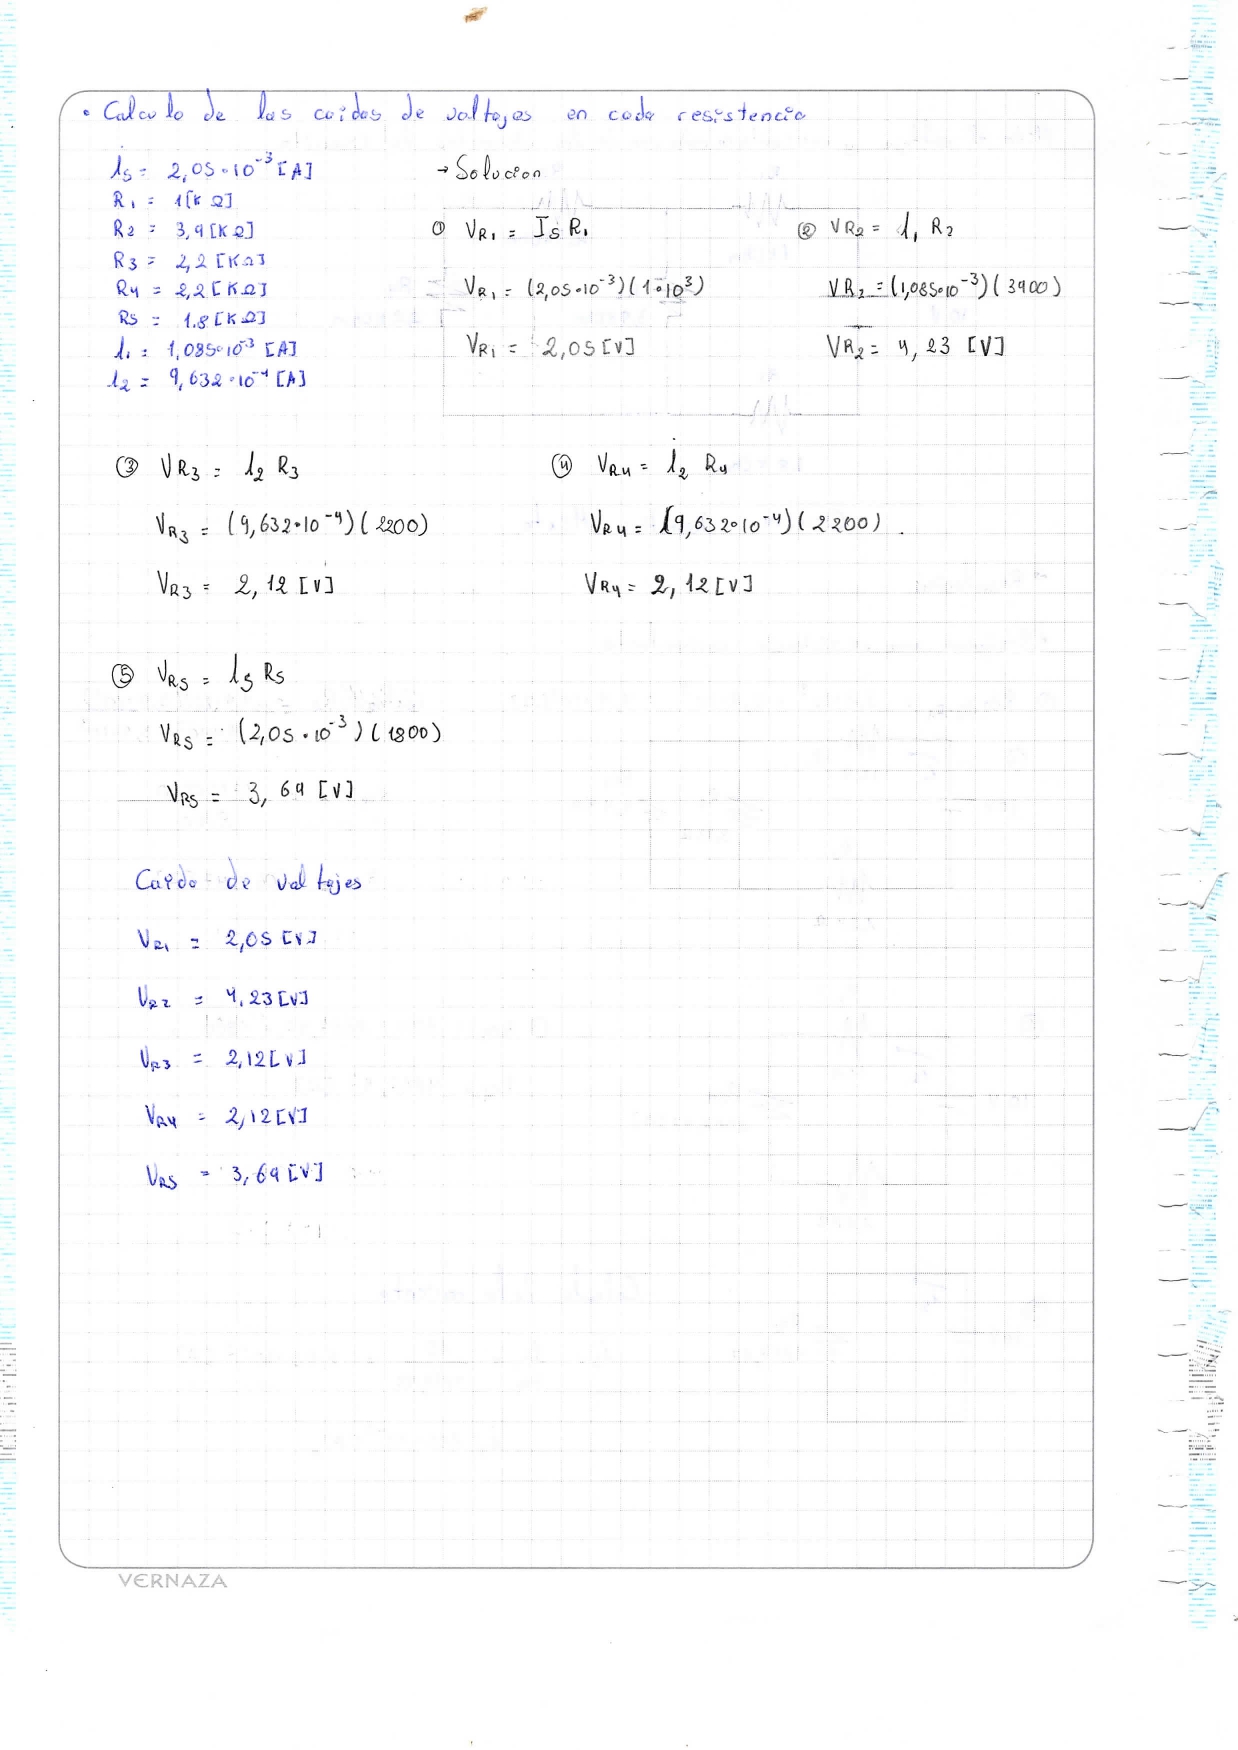 • Calculo de las caidas de voltajes en cada resistencia
Is = 2,05·10⁻³ [A]
R1 = 1[K Ω]
R2 = 3,9[KΩ]
R3 = 2,2[KΩ]
R4 = 2,2[KΩ]
R5 = 1.8[KΩ]
I1 = 1,085·10⁻³ [A]
I2 = 9,632·10⁻⁴ [A]
→ Solucion
① VR1 = Is R1
VR1 = (2,05·10⁻³)(1·10³)
VR1 = 2,05[V]
② VR2 = I1 R2
VR2 = (1,085·10⁻³)(3900)
VR2 = 4,23 [V]
③ VR3 = I2 R3
VR3 = (9,632·10⁻⁴)(2200)
VR3 = 2,12 [V]
④ VR4 = I2 R4
VR4 = (9,632·10⁻⁴)(2200)
VR4 = 2,12[V]
⑤ VR5 = Is R5
VR5 = (2,05·10⁻³)(1800)
VR5 = 3,69 [V]
Caida de voltajes
VR1 = 2,05[V]
VR2 = 4,23[V]
VR3 = 2,12[V]
VR4 = 2,12[V]
VR5 = 3,69[V]
VERNAZA